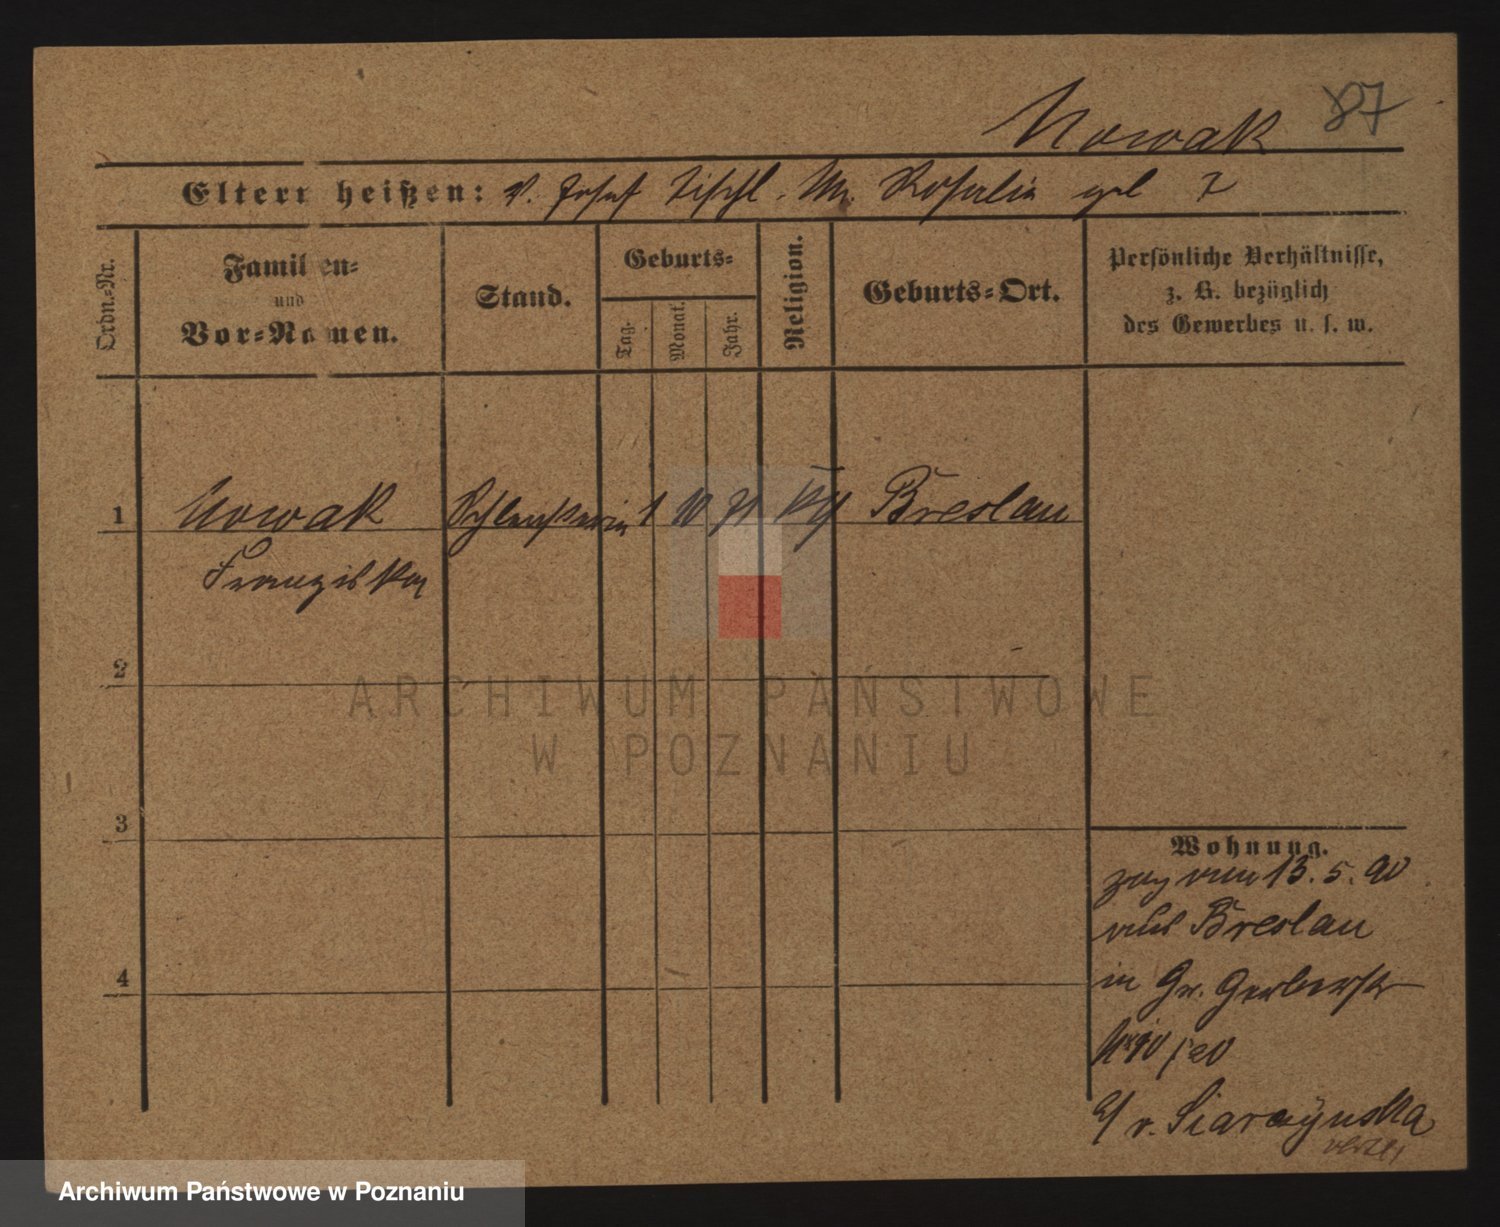 Nowak 87
Eltern heißen: V. Josef Tischl. M. Rosalia geb ?
Ordn.-Nr.
Familien-
und
Vor-Namen.
Stand.
Geburts-
Tag.
Monat.
Jahr.
Religion.
Geburts-Ort.
Persönliche Verhältnisse,
z. B. bezüglich
des Gewerbes u. s. w.
1 Nowak 1 10 71 Breslau
Franziska
2
3
4
Wohnung.
zog am 13. 5. 90
aus Breslau
in Gr. Gerberstr
ARCHIWUM PAŃSTWOWE
W POZNANIU
Archiwum Państwowe w Poznaniu